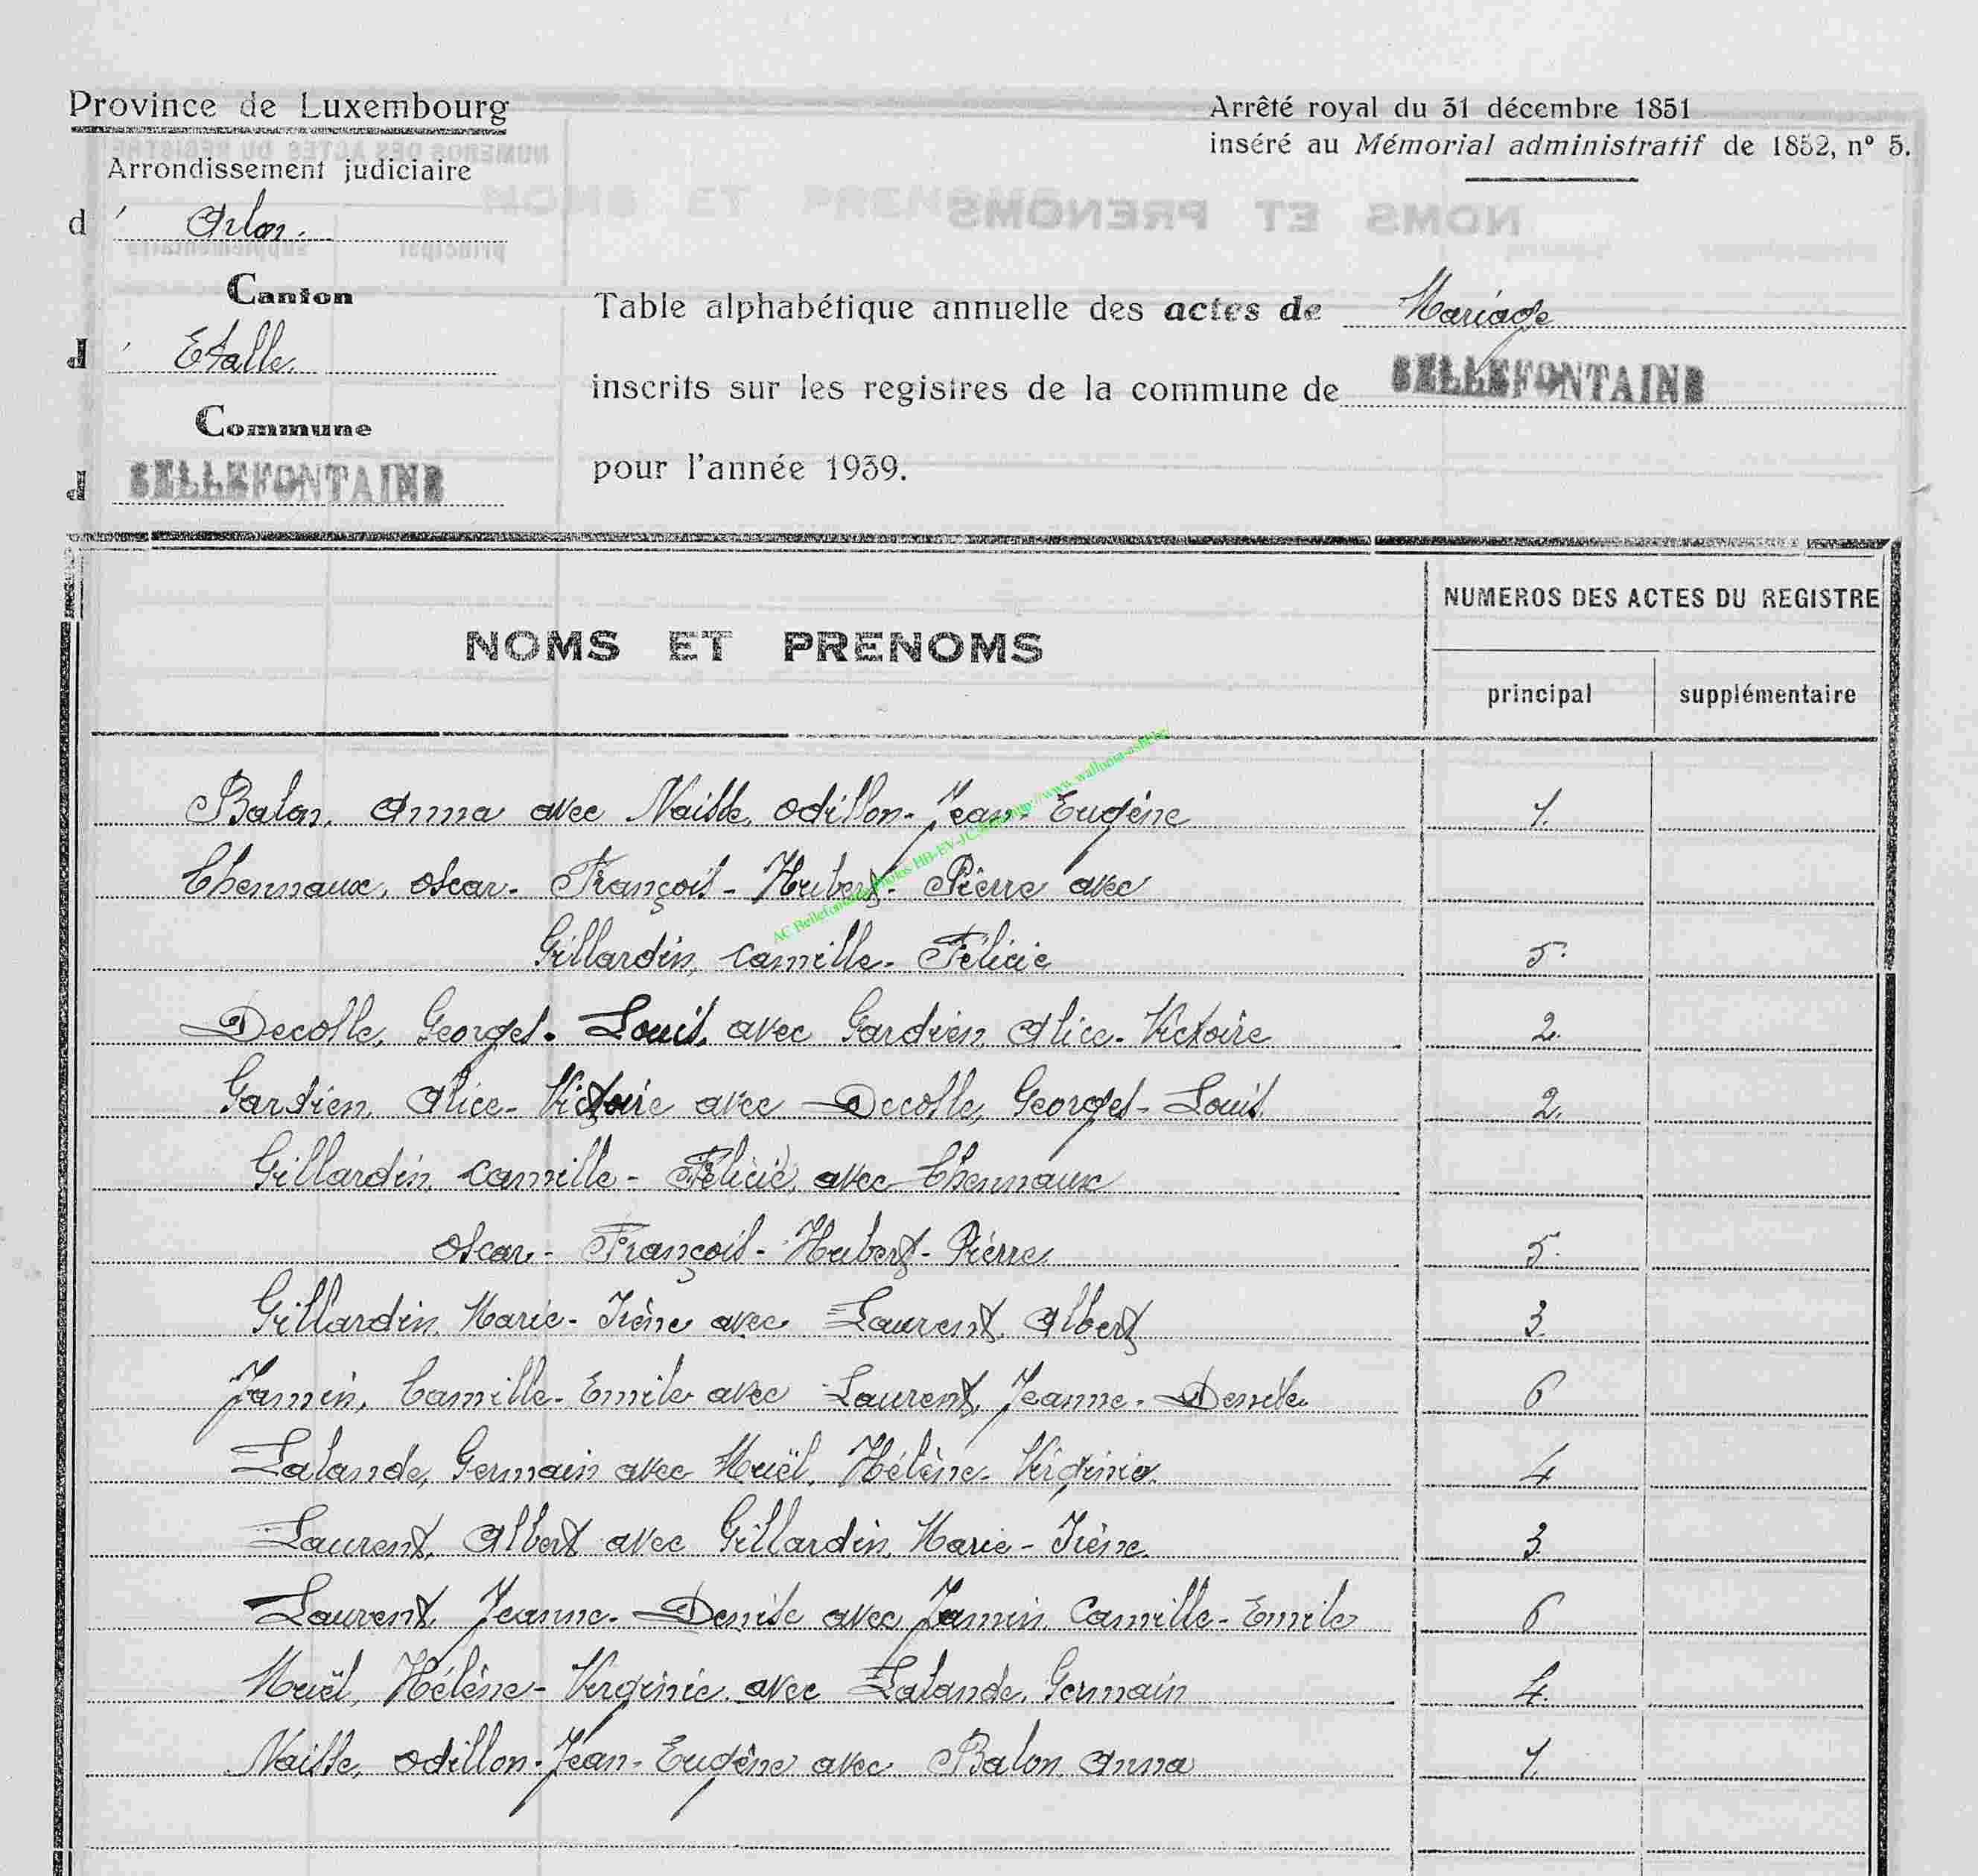 Province de Luxembourg
Arrêté royal du 31 décembre 1851
inséré au Mémorial administratif de 1852, nº 5.
Arrondissement judiciaire
d' Arlon.
Canton
d' Etalle.
Commune
d BELLEFONTAINE
Table alphabétique annuelle des actes de Mariage
inscrits sur les registres de la commune de BELLEFONTAINE
pour l'année 1939.
NOMS ET PRENOMS
NUMEROS DES ACTES DU REGISTRE
principal supplémentaire
Balon, Anna avec Naisse, Odillon-Jean-Eugène 1.
Chennaux, Oscar-François-Hubert-Pierre avec
Gillardin, Camille-Félicie 5.
Decolle, Georges-Louis, avec Gardien, Alice-Victoire 2.
Gardien, Alice-Victoire avec Decolle, Georges-Louis 2.
Gillardin, Camille-Félicie, avec Chennaux
Oscar-François-Hubert-Pierre 5.
Gillardin, Marie-Irène avec Laurent, Albert 3.
Jamin, Camille-Emile avec Laurent, Jeanne-Denise 6
Lalande, Germain avec Muël, Hélène-Virginie. 4
Laurent, Albert avec Gillardin, Marie-Irène. 3.
Laurent, Jeanne-Denise avec Jamin, Camille-Emile 6
Muël, Hélène-Virginie avec Lalande, Germain 4.
Naisse, Odillon-Jean-Eugène avec Balon, Anna 1.